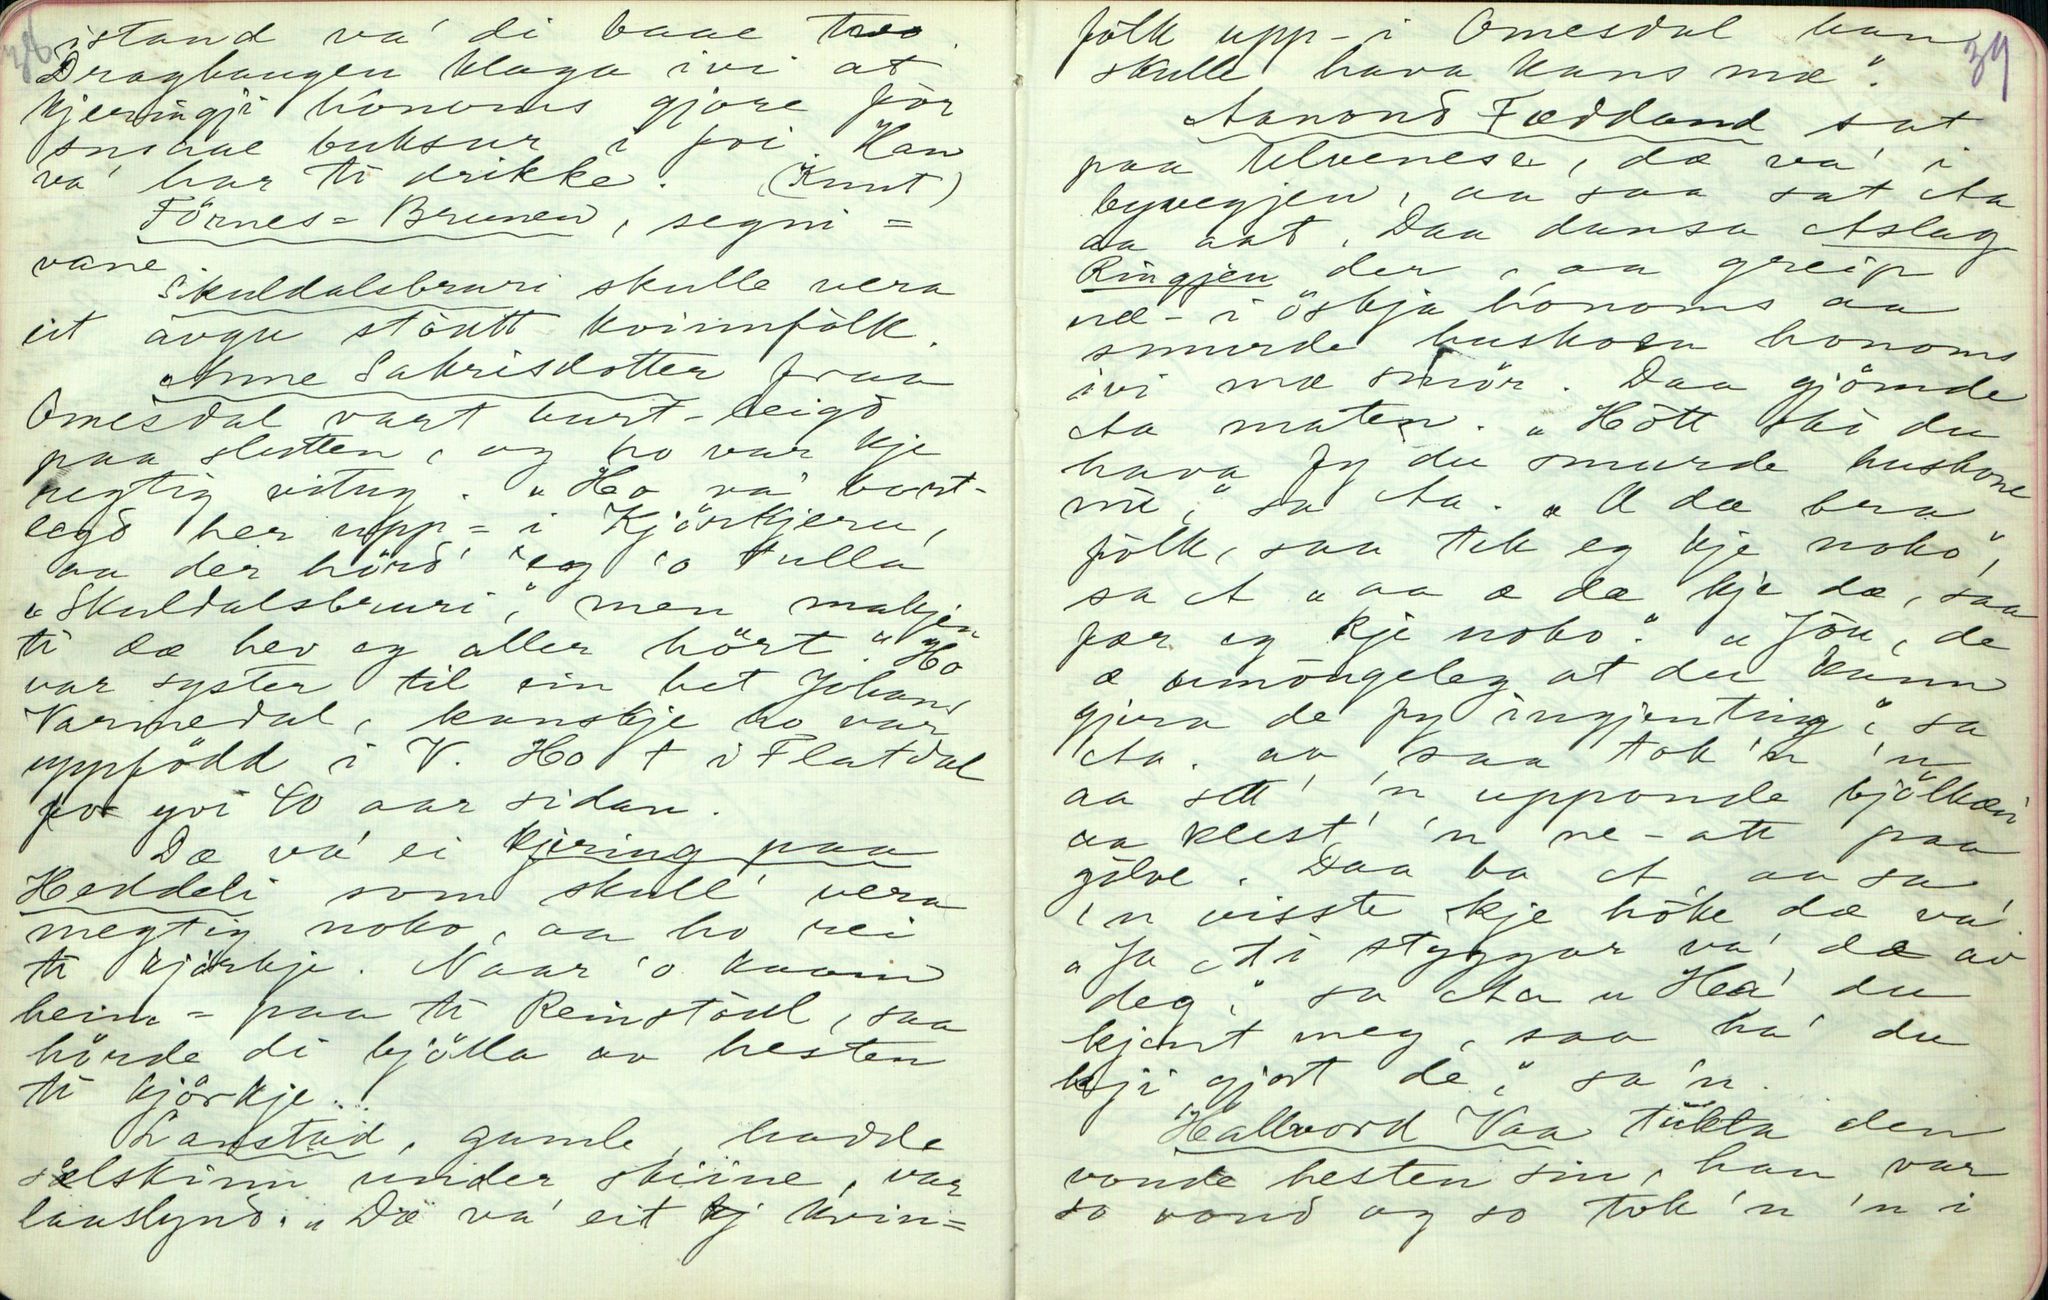 38
istand va' di baae two.
Draghaugen klaga ivi at
kjeringji honoms gjore for
smaae buksur i foi. Han
va' har ti drikke. (Knut)
Förnes-Brunen, segni-
vane
Skuldalsbruri skulle vera
eit ovgu stöutt kvinnfolk.
Anne Sakrisdotter fraa
Omesdal vart burt-leigd
paa slutten, og ho var kje
regtig vitug. "Ho va' bort-
legd her upp-i Kjörkjeru,
aa der hörd' eg 'o tulla
"Skuldalsbruri", men makjen
ti dæ hev eg aller hört." Ho
var syster til ein het Johans
Varmedal, kanskje ho var
uppfödd i V. Ho † i Flatdal
for yvi 40 aar sidan.
Dæ va' ei kjering paa
Heddeli som skull' vera
megtig noko, aa ho rei
ti kjörkje. Naar 'o kaam
heim-paa ti Reinstöul, saa
hörde di bjölla av hesten
ti kjörkje.
Lanstad, gamle, hadde
sælskinn under skiine, var
lauslynd. "Dæ va' eit kj kvin-
39
folk upp-i Omesdal han
skulle hava kans mæ".
Aanond Fæddand sat
paa Ulvenese, dæ va' i
byvegjen, aa saa sat Aa
aa aat. Daa dansa Aslag
Ringjen der, aa greip
ne-i öskja honoms aa
smurde huskoen honoms
ivi mæ smör. Daa gjömde
Aa maten. "Hott ski du
hava fy du smurde huskone
mi," sa Aa. "Æ dæ bra
folk, saa tek eg kje noko",
sa A "aa æ dæ kje dæ, saa
fær eg kje noko". "Jou, de
æ umöugeleg at du kann
gjera de fy ingjenting", sa
Aa. aa saa tok 'n 'n
aa sett' 'n upponde bjölkæn
aa kleist' 'n ne-att paa
golve. Daa ba A aa sa
'n visste kje hoke dæ va'.
"Ja di styggar va' dæ av
deg," sa Aa "Hea' du
kjent meg, saa ha' du
kji gjort de," sa 'n.
Hallvord Vaa tukta den
vonde hesten sin, han var
so vond og so tok 'n 'n i